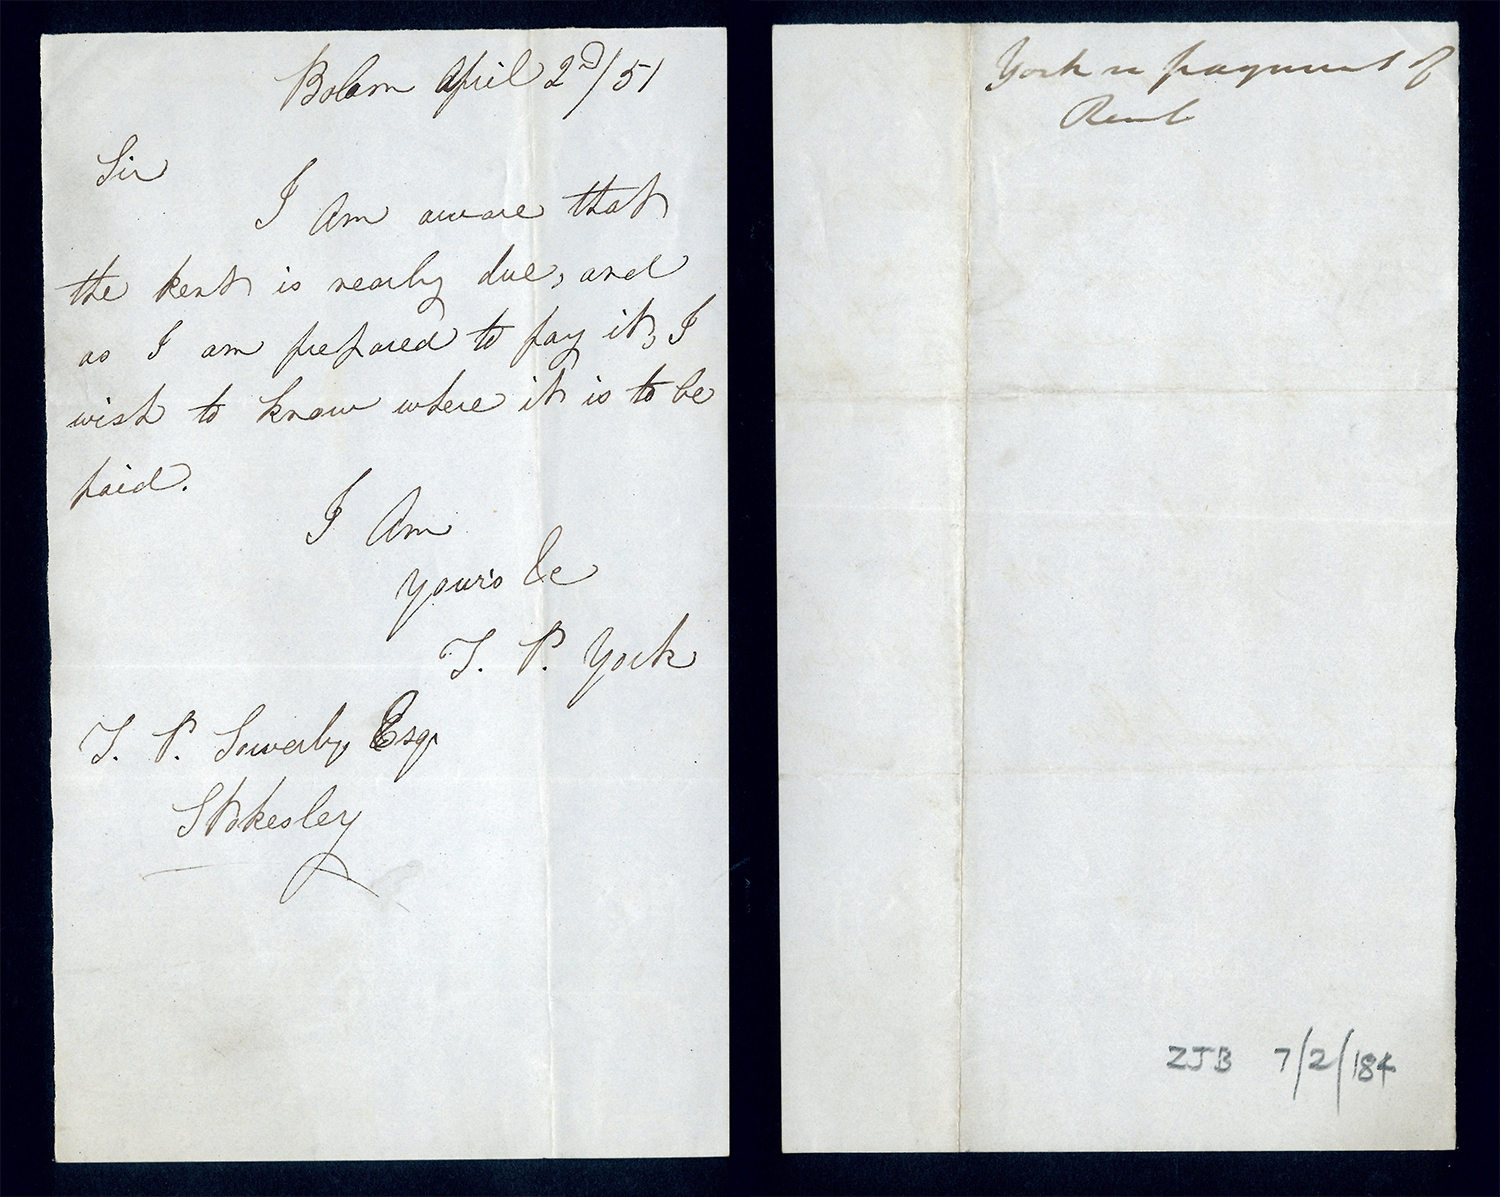 Bolam April 2nd/51
Sir
I Am aware that
the Rent is nearly due, and
as I am prepared to pay it, I
wish to know where it is to be
paid.
I Am
Yours &c
T. P. York
T. P. Sowerby Esqr
Stokesley
York re payment of
Rent
ZJB 7/2/184